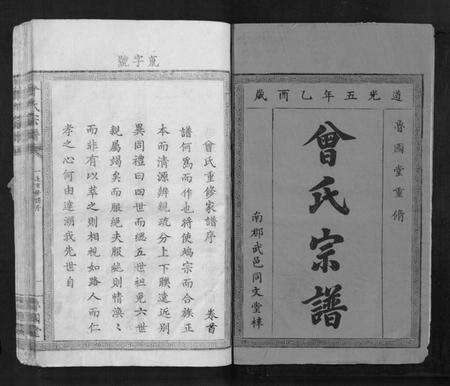 道光五年乙酉歲
魯國堂重脩
曾氏宗譜
南郡武邑同文堂梓
荒字號
曾氏重修家譜序
卷首
譜何為而作也將使端宗而合族正
本而清源辨親疏分上下聯遠近別
異同禮曰四世而緦五世祖免六世
親屬竭矣而服絕夫服絕則情渙〻
而非有以萃之則相視如路人而仁
孝之心何由達溯我先世自